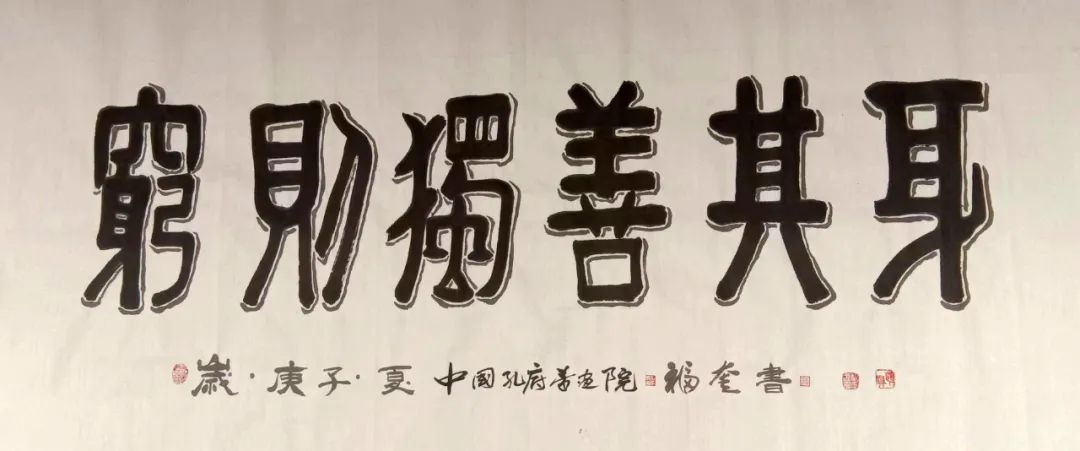 窮則獨善其身
歲·庚子·夏 中國孔府書畫院 福奎書